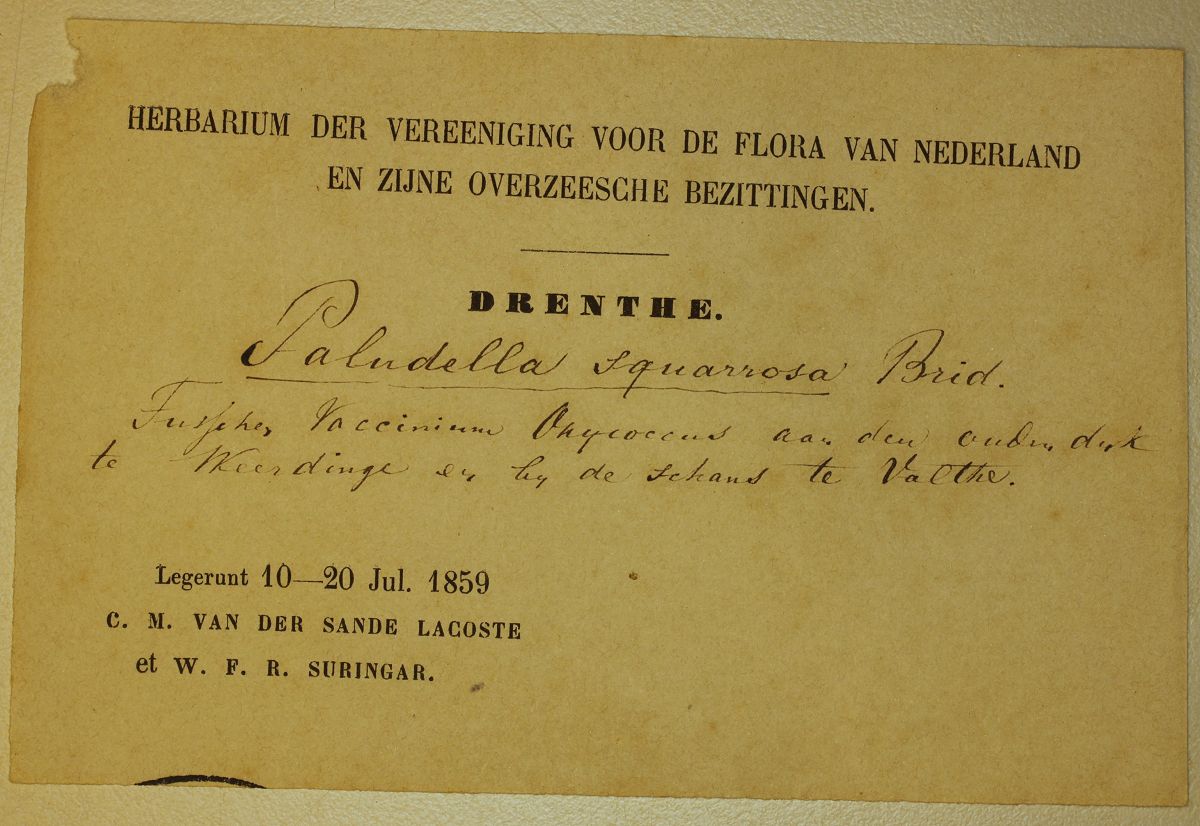 HERBARIUM DER VEREENIGING VOOR DE FLORA VAN NEDERLAND
EN ZIJNE OVERZEESCHE BEZITTINGEN.
DRENTHE.
Paludella squarrosa Brid.
Tusschen Vaccinium Oxycoccus aan den ouden dijk
te Weerdinge en by de schans te Valthe.
Legerunt 10—20 Jul. 1859
C. M. VAN DER SANDE LACOSTE
et W. F. R. SURINGAR.